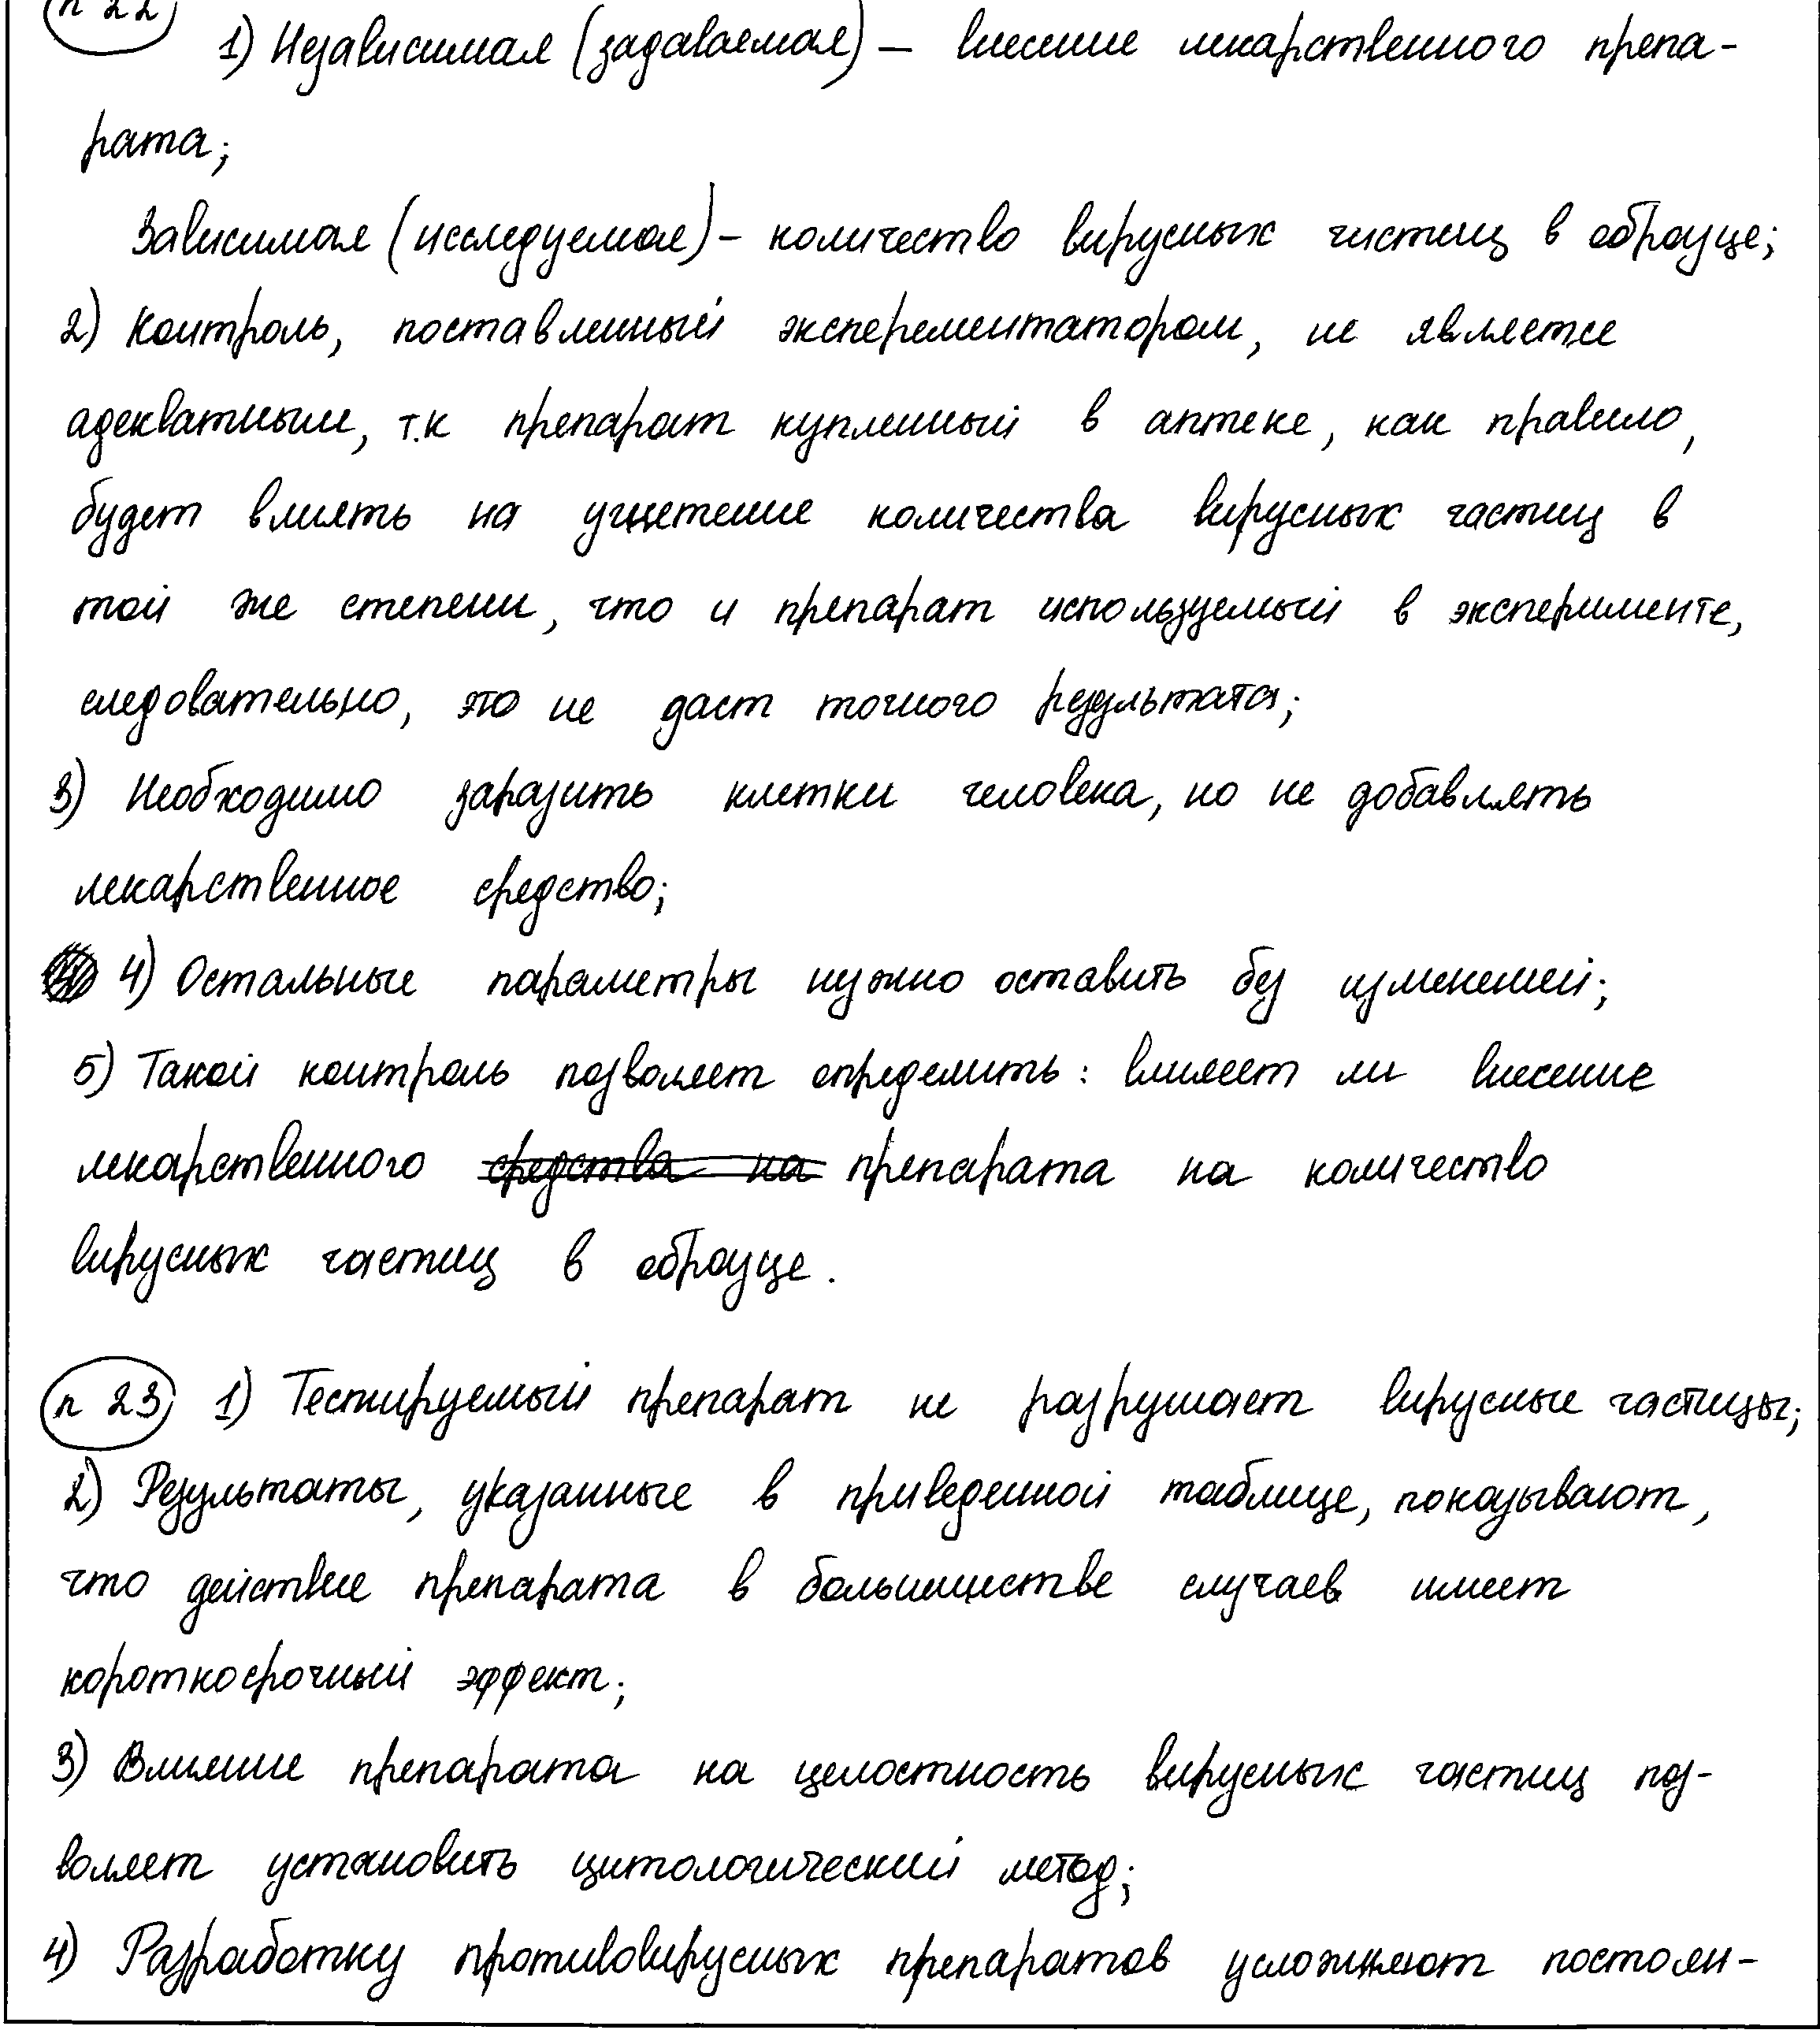 n 22
1) Независимая (задаваемая) – внесение лекарственного препа-
рата;
Зависимая (исследуемая) – количество вирусных чистиц в образце;
2) Контроль, поставленный эксперементатором, не является
адекватным, т.к препарат купленный в аптеке, как правило,
будет влиять на угнетение количества вирусных частиц в
той же степени, что и препарат используемый в эксперименте,
следовательно, это не даст точного результата;
3) Необходимо заразить клетки человека, но не добавлять
лекарственное средство;
4) Остальные параметры нужно оставить без изменений;
5) Такой контроль позволяет определить: влияет ли внесение
лекарственного средства на препарата на количество
вирусных частиц в образце.
n 23 1) Тестируемый препарат не разрушает вирусные частицы;
2) Результаты, указанные в приведенной таблице, показывают,
что действие препарата в большинстве случаев имеет
короткосрочный эффект;
3) Влияние препарата на целостность вирусных частиц поз-
воляет установить цитологический метод;
4) Разработку противовирусных препаратов усложняют постоян-